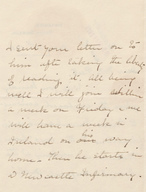 I sent your letter on to
him after taking the liberty
of reading it. All being
well I will join
week on Friday & we
will have a week in
Ireland on his way
home. Then he starts in
Newcastle Infirmary.